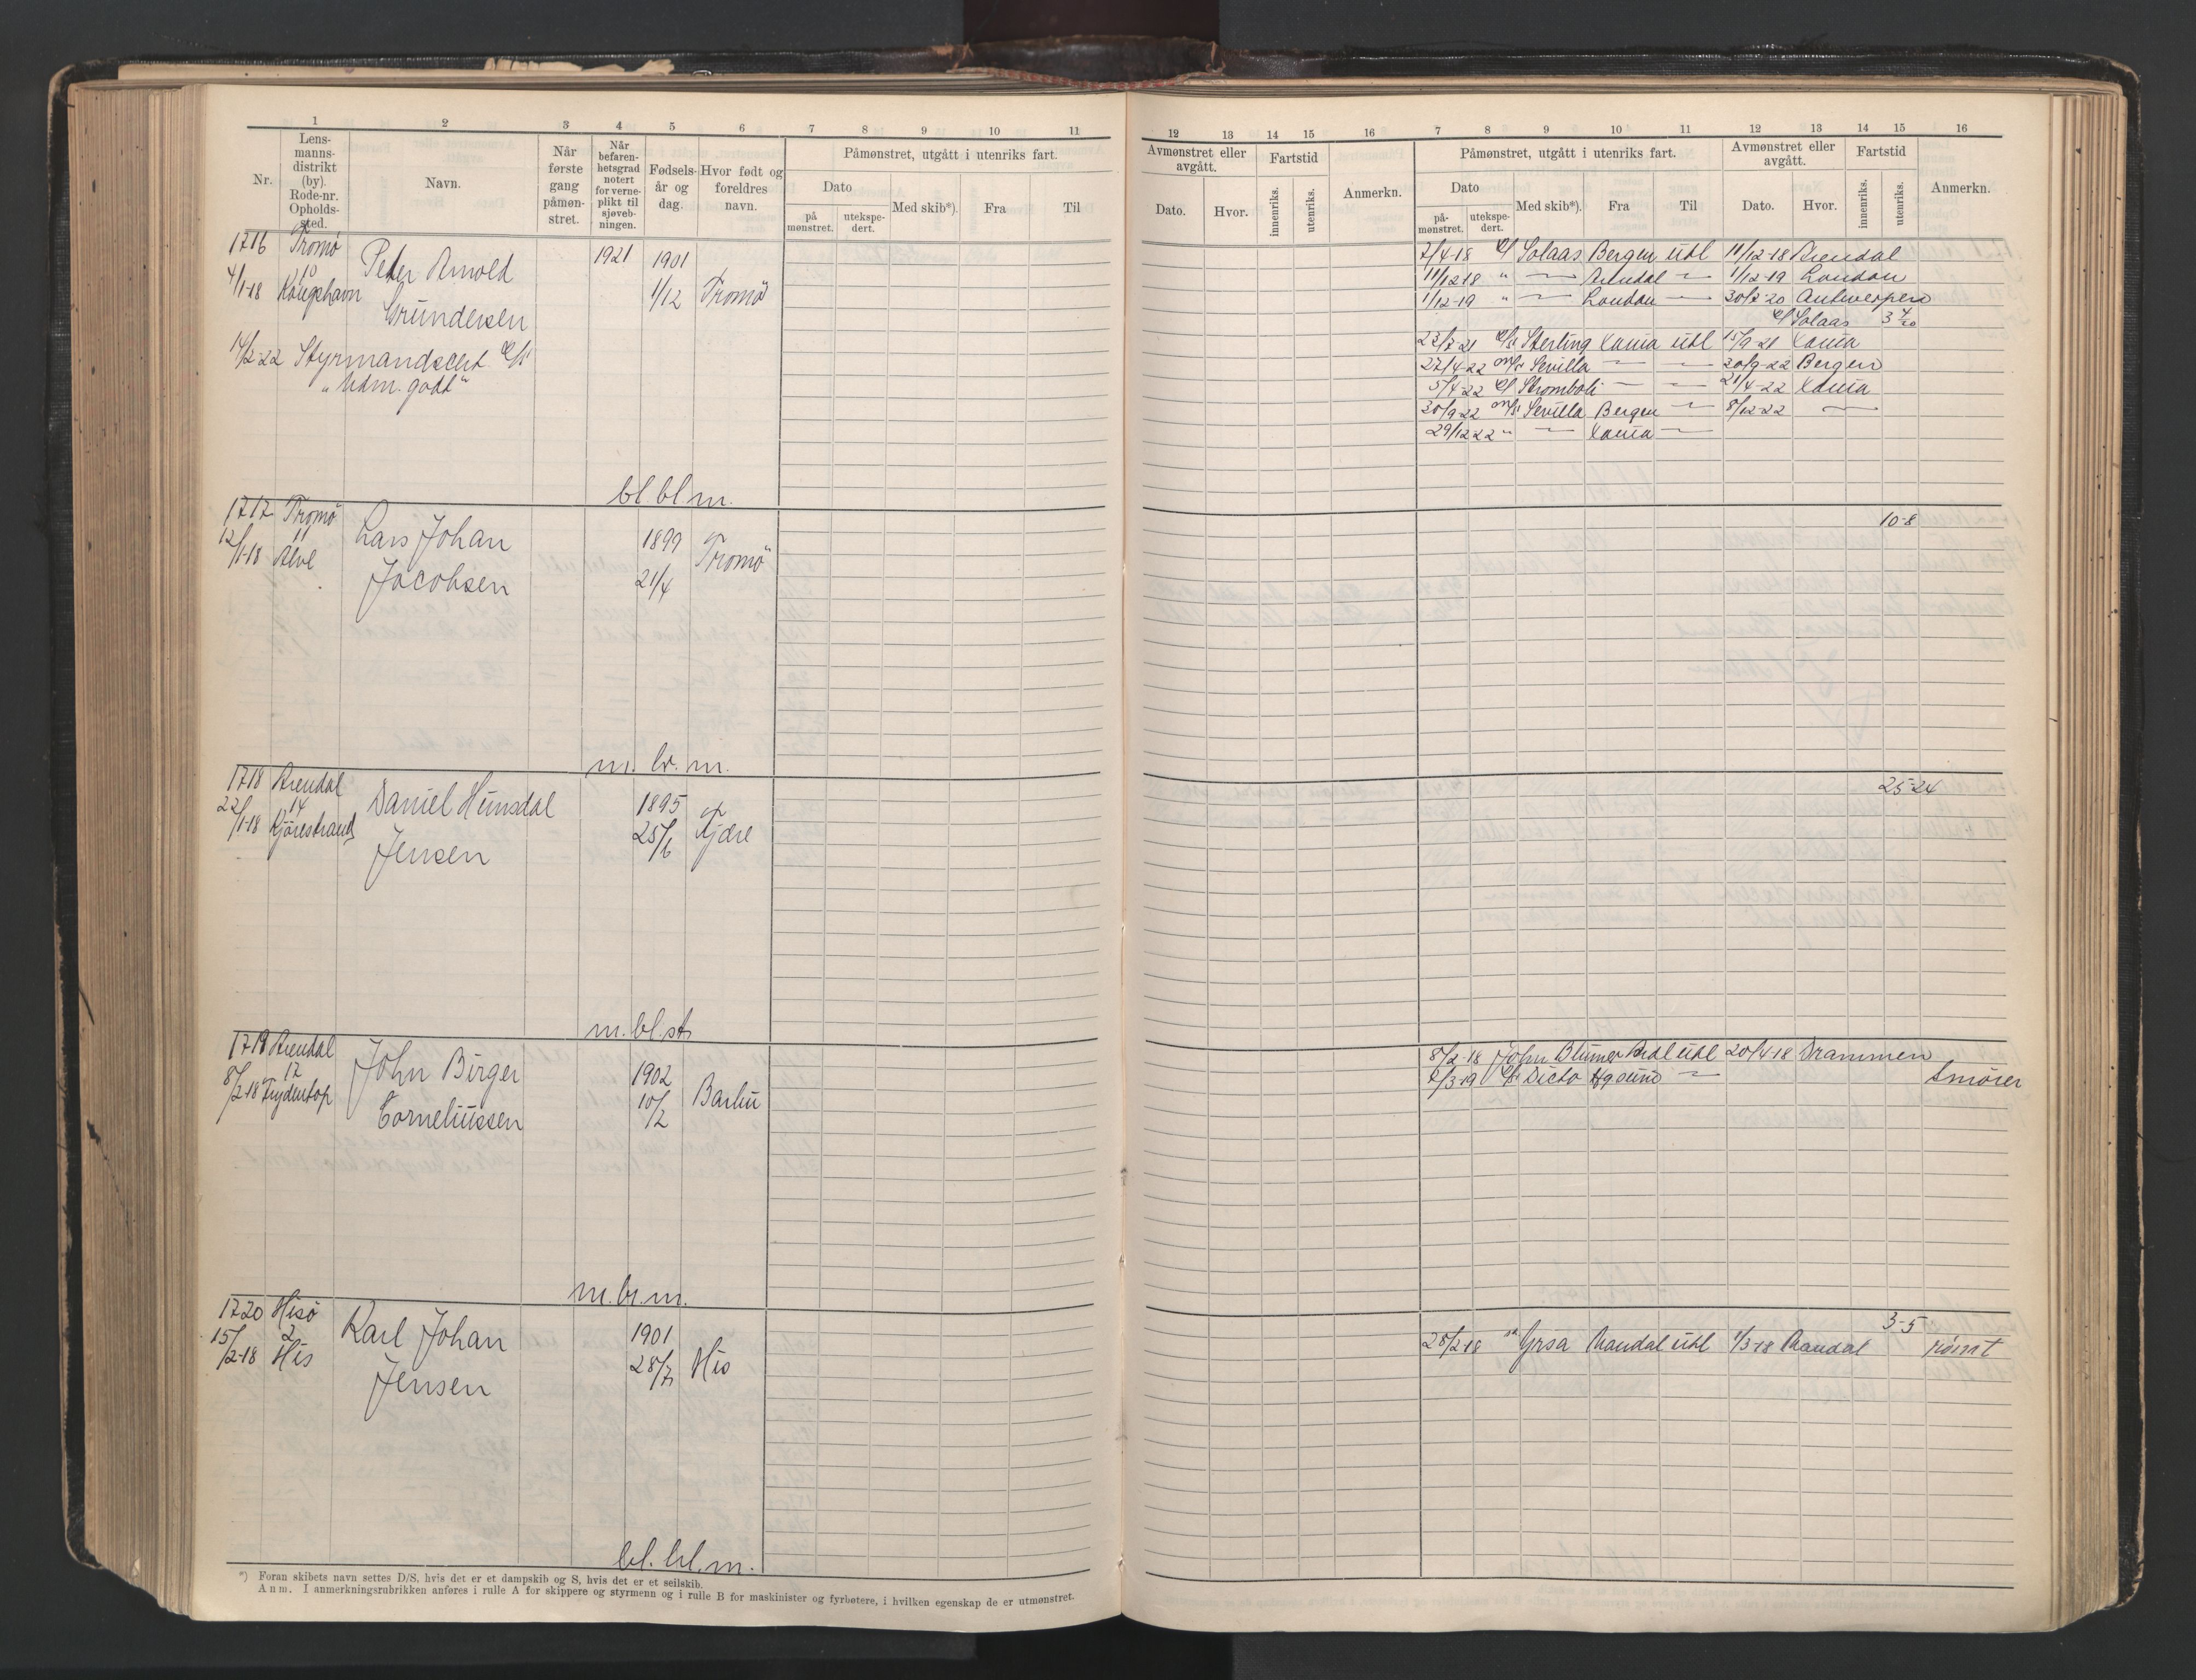 1 2 3 4 5 6 7 8 9 10 11
Nr.
Lens-
manns-
distrikt
(by).
Rode-nr.
Opholds-
sted.
Navn.
Når
første
gang
påmøn-
stret.
Når
befaren-
hetsgrad
notert
for verne-
plikt til
sjøveb-
ningen.
Fødsels-
år og
dag.
Hvor født og
foreldres
navn.
Påmønstret, utgått i utenriks fart.
Dato
på
mønstret.
utekspe-
dert.
Med skib*).
Fra
Til
1716 Tromø
10
4/1-18 Kongshavn
Peter Arnold
Gundersen
1921
1901
1/12
Tromø
14/2-22 Styrmandscert.
"Udm. godt"
bl. bl. m.
1717 Tromø
11
12/1-18 Alve
Lars Johan
Jacobsen
1899
21/4
Tromø
m. br. m.
1718 Arendal
14
22/1-18 Kjørestrand
Daniel Hunsdal
Jensen
1895
25/6
Tjøre
m. bl. st.
1719 Arendal
17
8/2-18 Frydentop
John Birger
Corneliussen
1902
10/2
Barbu
m. br. m.
1720 Hisø
2
15/2-18 His
Karl Johan
Jensen
1901
28/7
His
bl. bl. m.
*) Foran skibets navn settes D/S, hvis det er et dampskib og S, hvis det er et seilskib.
Anm. I anmerkningsrubrikken anføres i rulle A for skippere og styrmenn og i rulle B for maskinister og fyrbøtere, i hvilken egenskap de er utmønstret.
12 13 14 15 16 7 8 9 10 11 12 13 14 15 16
Avmønstret eller
avgått.
Dato.
Hvor.
Fartstid
innenriks.
utenriks.
Anmerkn.
Påmønstret, utgått i utenriks fart.
Dato
på-
mønstret.
utekspe-
dert.
Med skib*).
Fra
Til
Avmønstret eller
avgått.
Dato.
Hvor.
Fartstid
innenriks.
utenriks.
Anmerkn.
7/4-18 Solaas Bergen utl 11/12-18 Arendal
11/12-18 " — Arendal — 1/12-19 London
1/12-19 " — London — 30/7-20 Antwerpen
Solaas 3 4/20
23/7-21 Sterling Xania utl 15/9-21 Xania
27/4-22 m/s Sevilla — — 30/9-22 Bergen
5/4-22 Stromboli — — 21/4-22 Xania
30/9-22 m/s Sevilla Bergen — 8/12-22 —
29/12-22 " — Xania —
10-8
25-24
8/2-18 John Blumer Ardl utl 20/4-18 Drammen
Dicto Hgsund — Smører
3-5
28/2-18 Yrsa Mandal utl 1/3-18 Mandal rømt